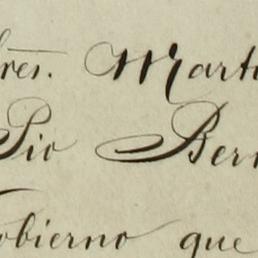 res. Mart
Pio Ber
obierno que